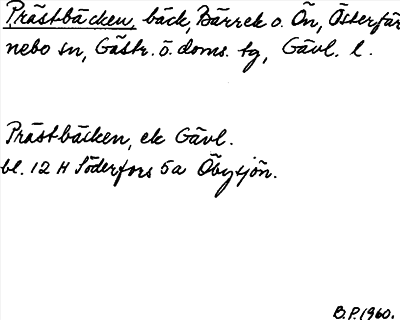 Prästbäcken, bäck, Bärrek o. Ön, Österfär
nebo sn, Gästr. ö. doms. tg, Gävl. l.
Prästbäcken, ek Gävl.
bl. 12 H Söderfors 5a Öbysjön.
B.P. 1960.